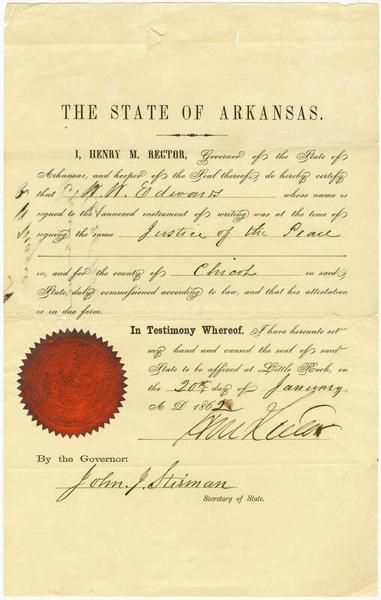 THE STATE OF ARKANSAS.
I, HENRY M. RECTOR, Governor of the State of
Arkansas, and keeper of the Seal thereof, do hereby certify
that W. W. Edwards whose name is
signed to the annexed instrument of writing was at the time of
signing the same Justice of the Peace
in, and for the county of Chicot in said
State, duly commissioned according to law, and that his attestation
is in due form.
In Testimony Whereof, I have hereunto set
my hand and caused the seal of said
State to be affixed at Little Rock, on
the 20th day of January
A D 1862
H M Rector
By the Governor:
John. J. Stirman
Secretary of State.